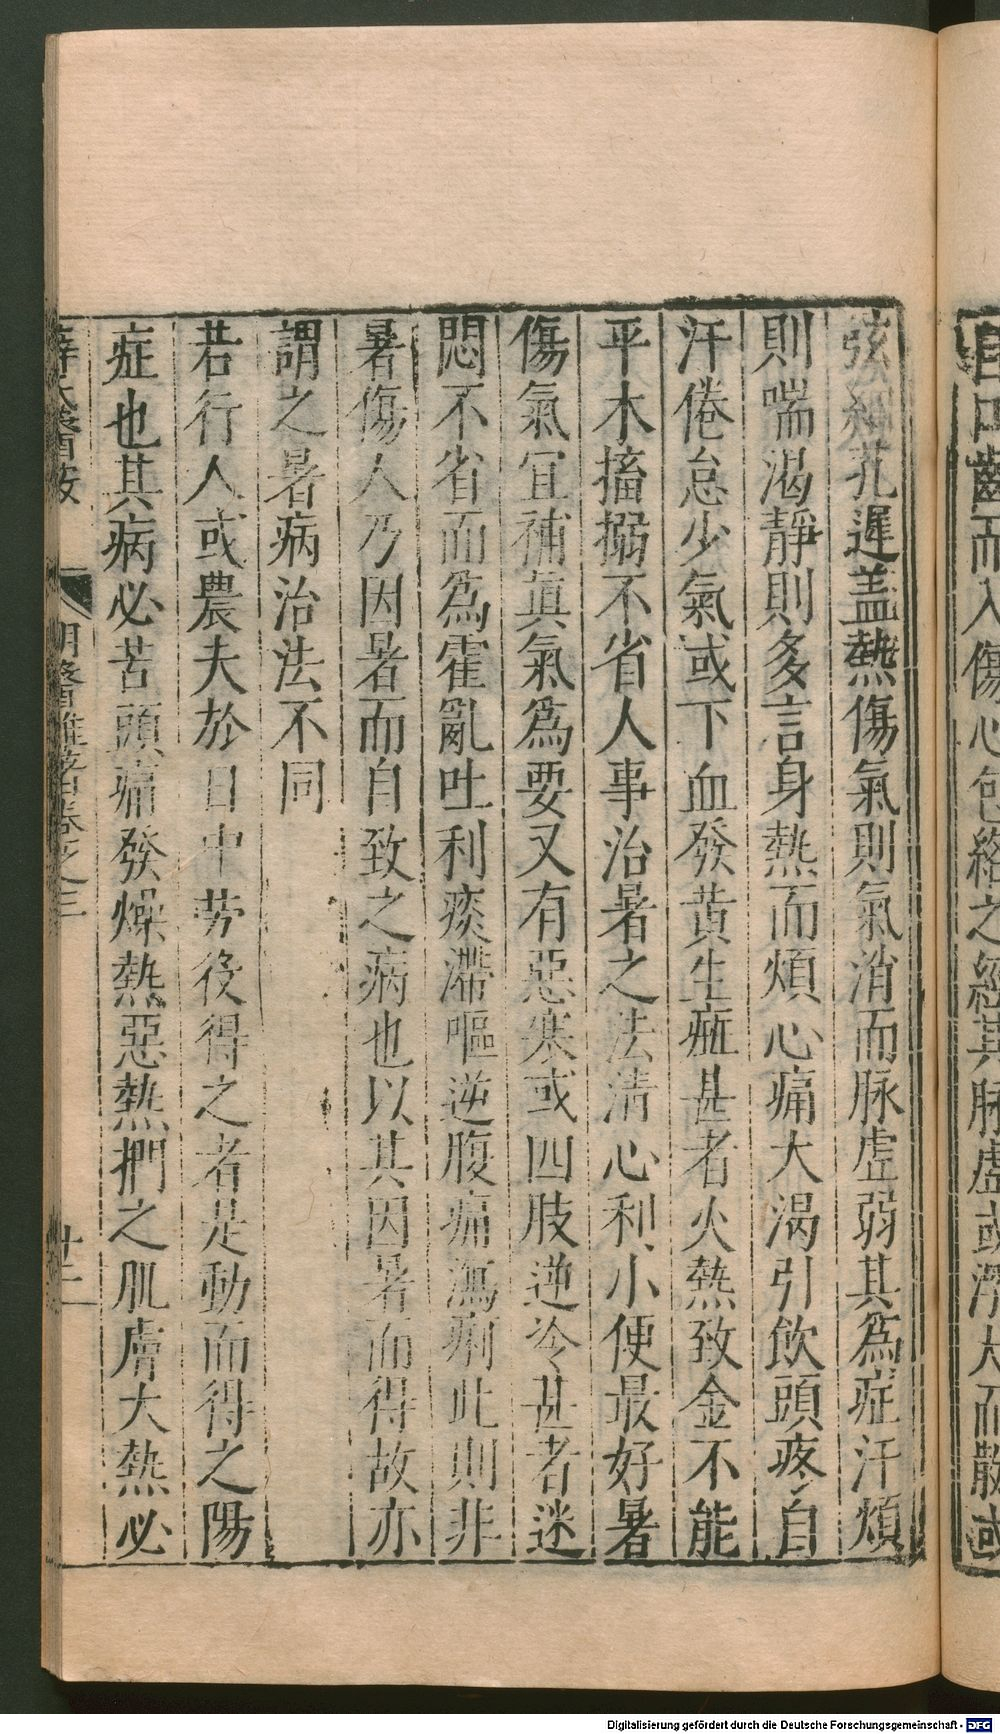 自口齒而入傷心包絡之經其脉虛或浮大而散或
弦細芤遲盖熱傷氣則氣消而脉虛弱其爲症汗煩
則喘渴靜則多言身熱而煩心痛大渴引飲頭疼自
汗倦怠少氣或下血發黄生疵甚者火熱致金不能
平木搐搦不省人事治暑之法清心利小便最好暑
傷氣宜補眞氣爲要又有惡寒或四肢逆冷甚者迷
悶不省而爲霍亂吐利痰滯嘔逆腹痛瀉痢此則非
暑傷人乃因暑而自致之病也以其因暑而得故亦
謂之暑病治法不同
若行人或農夫於日中劳役得之者是動而得之陽
症也其病必苦頭痛發燥熱惡熱捫之肌膚大熱必
薛氏醫按 明醫雜著卷之三 廿二
Digitalisierung gefördert durch die Deutsche Forschungsgemeinschaft - DFG